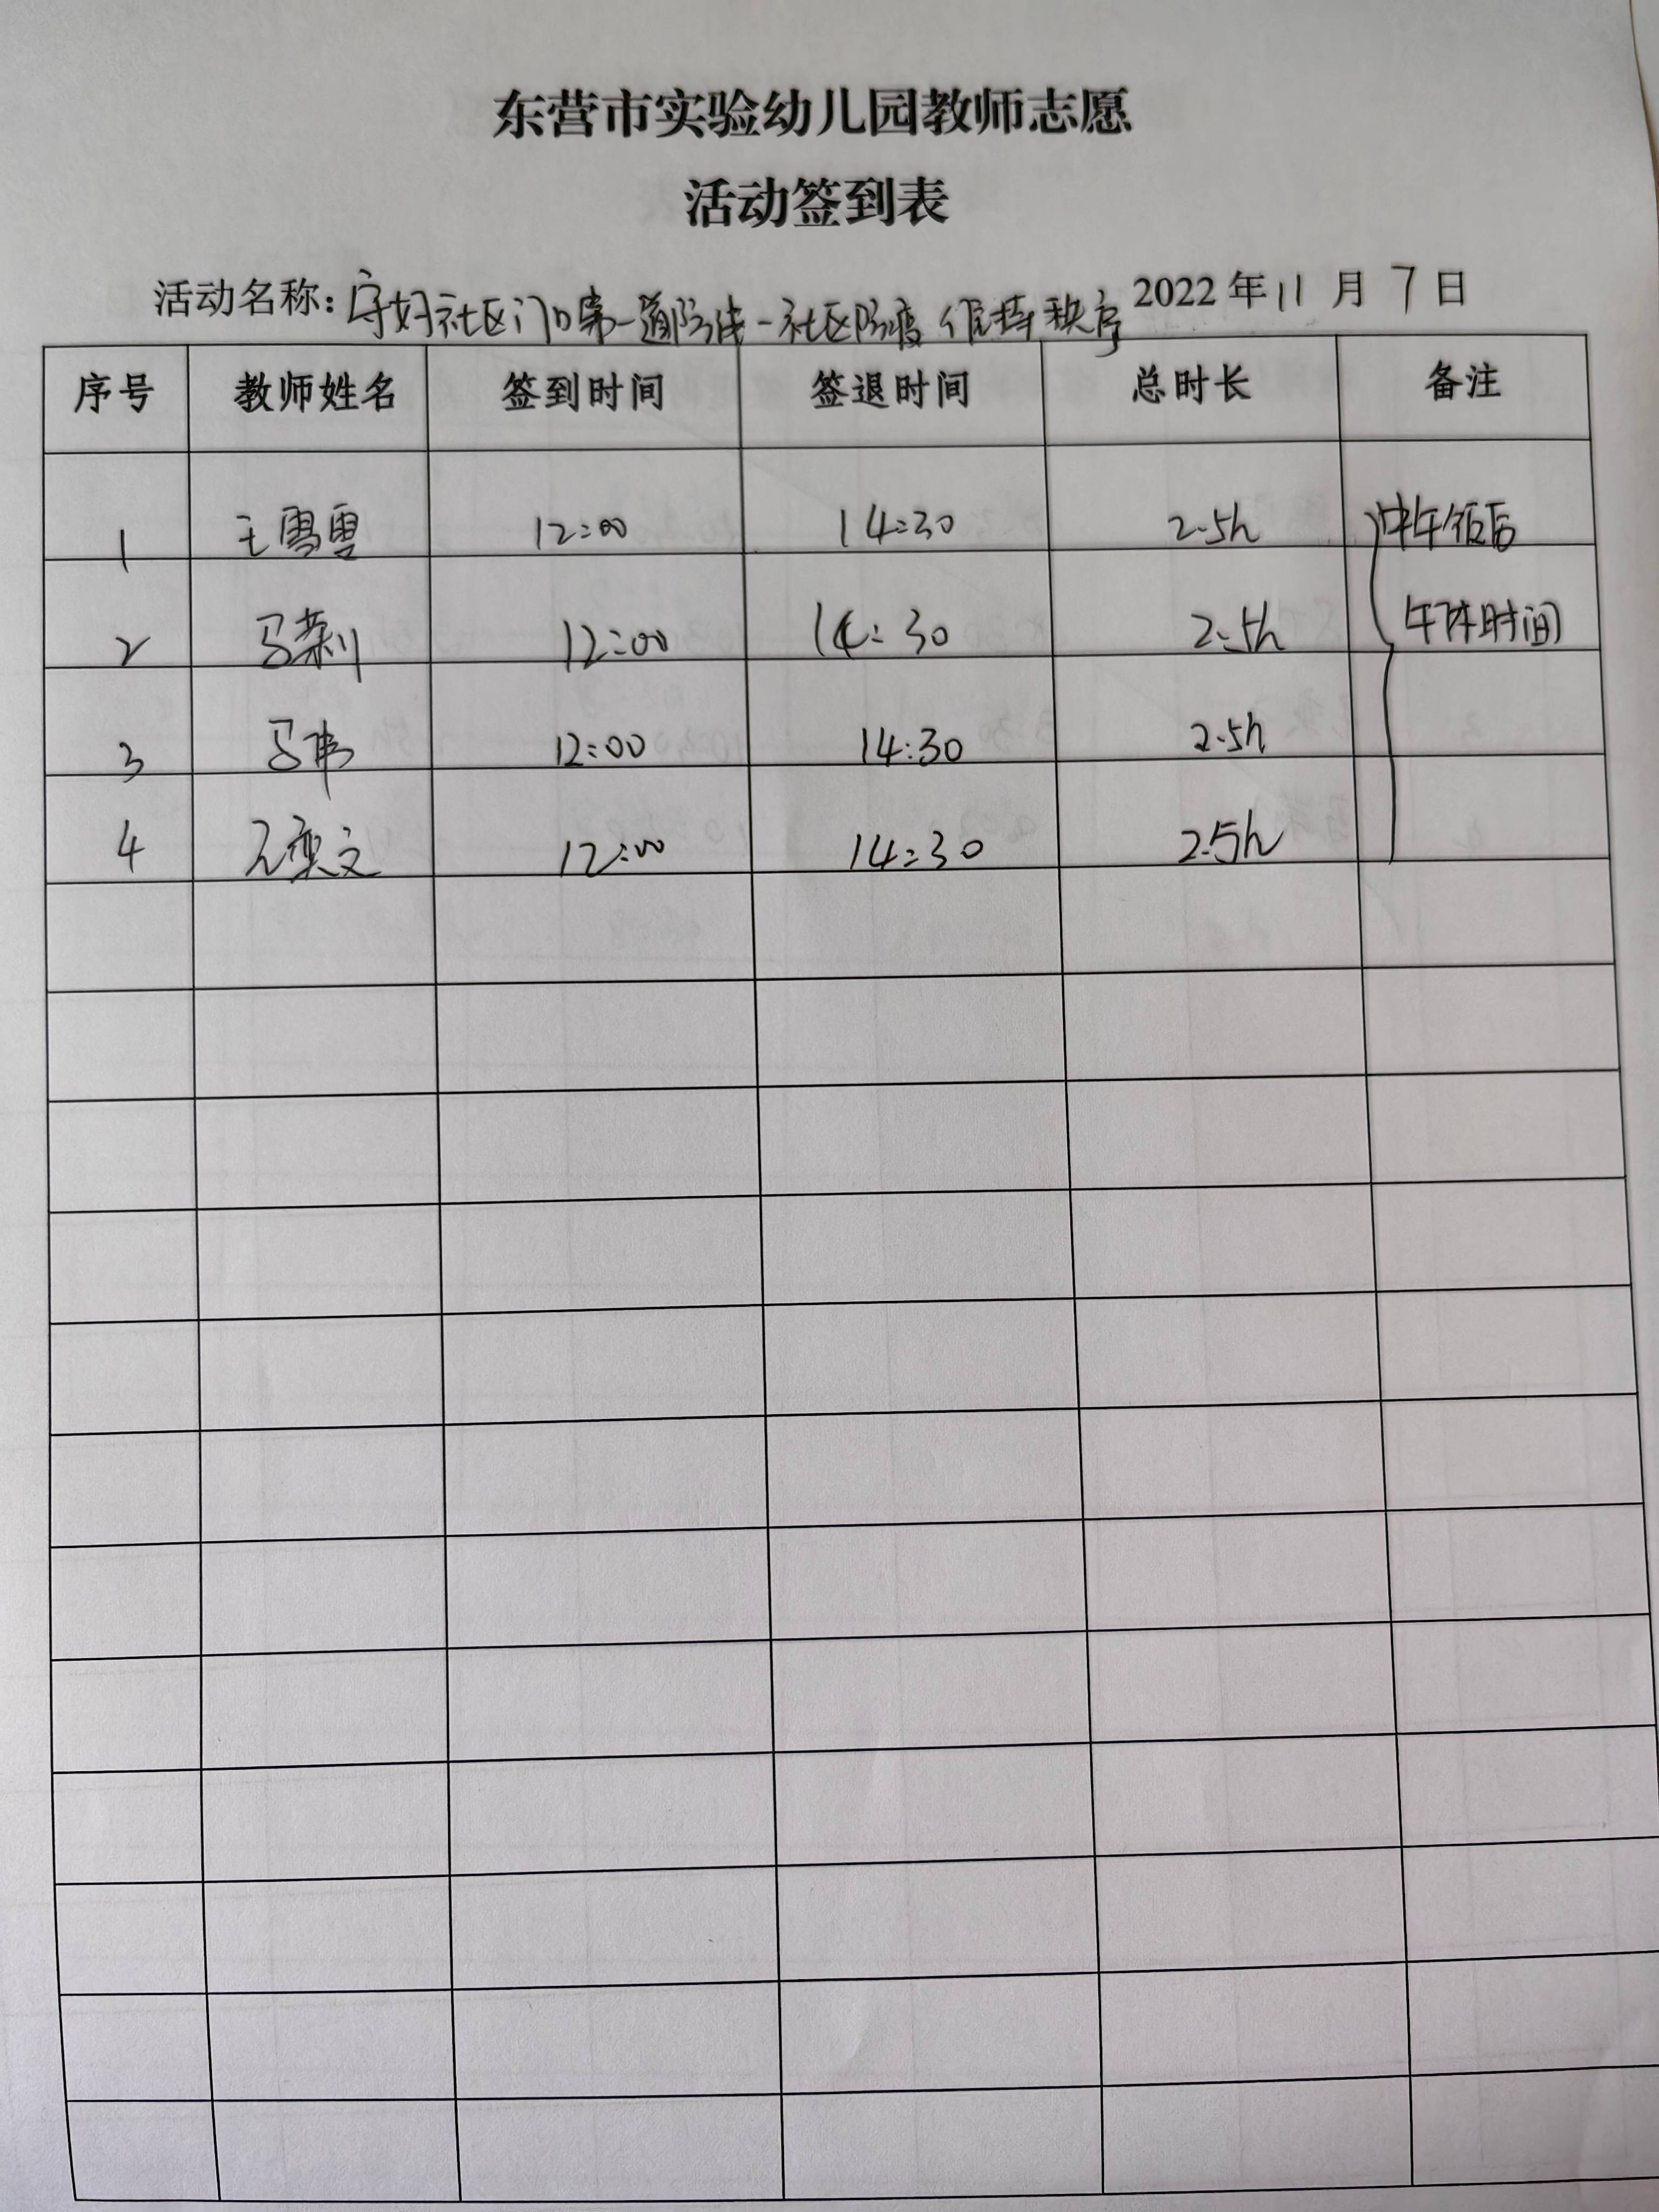 东营市实验幼儿园教师志愿
活动签到表
活动名称:守好社区门口第一道防线-社区防疫 维持秩序 2022年11月7日
序号 教师姓名 签到时间 签退时间 总时长 备注
1 王雪雪 12:00 14:30 2.5h 中午饭后
2 马荣 12:00 14:30 2.5h 午休时间
3 马 12:00 14:30 2.5h
4 文 12:00 14:30 2.5h